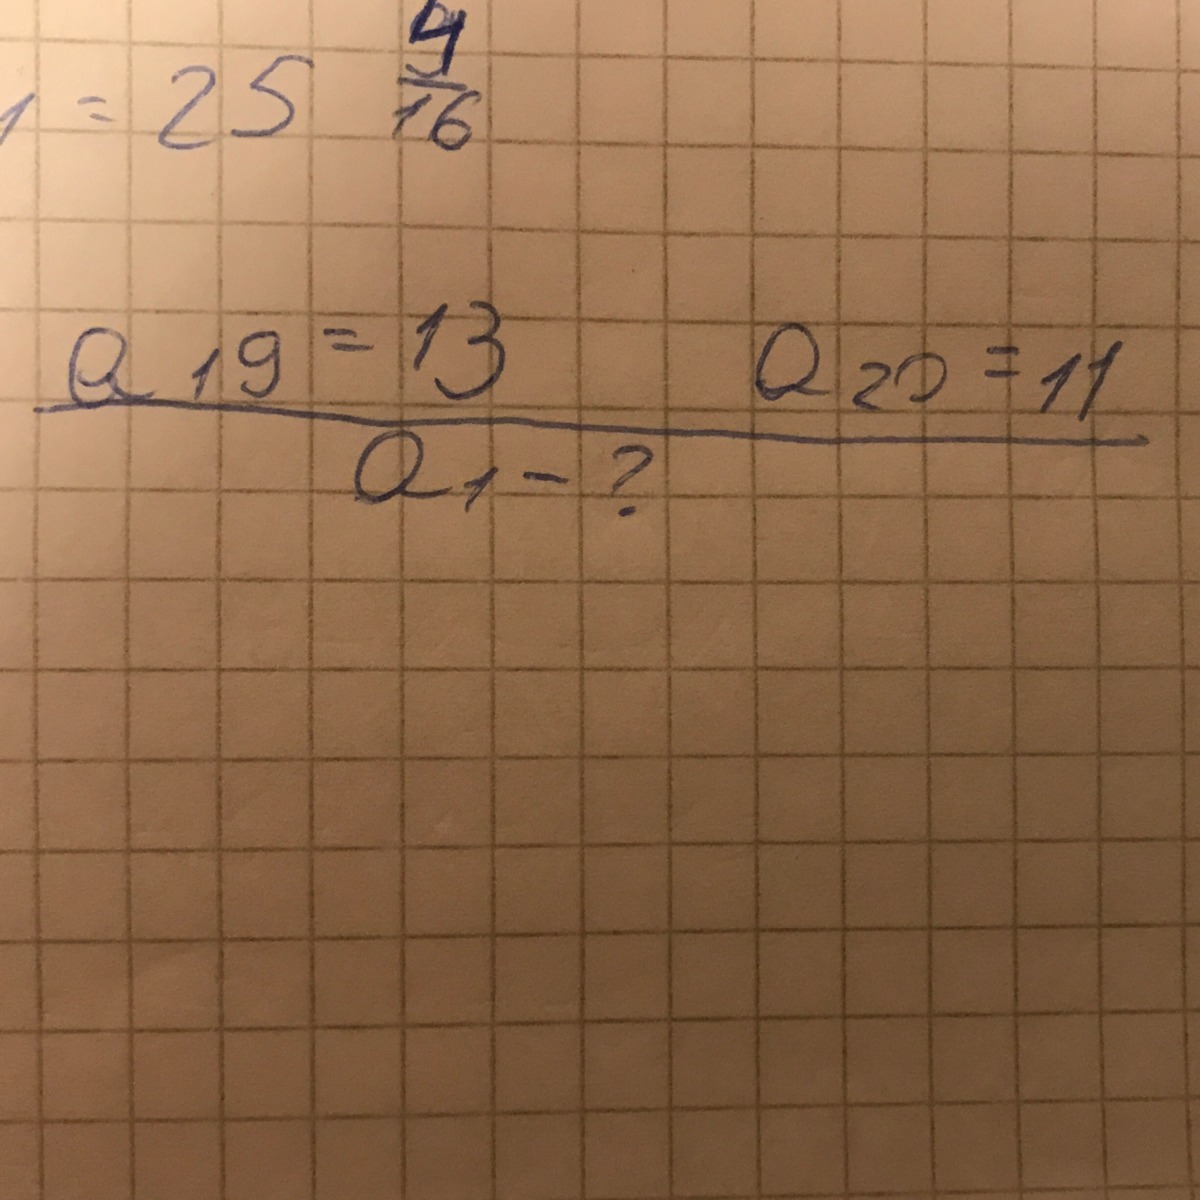 1 = 25 4/16
a19 = 13 a20 = 11
a1 - ?